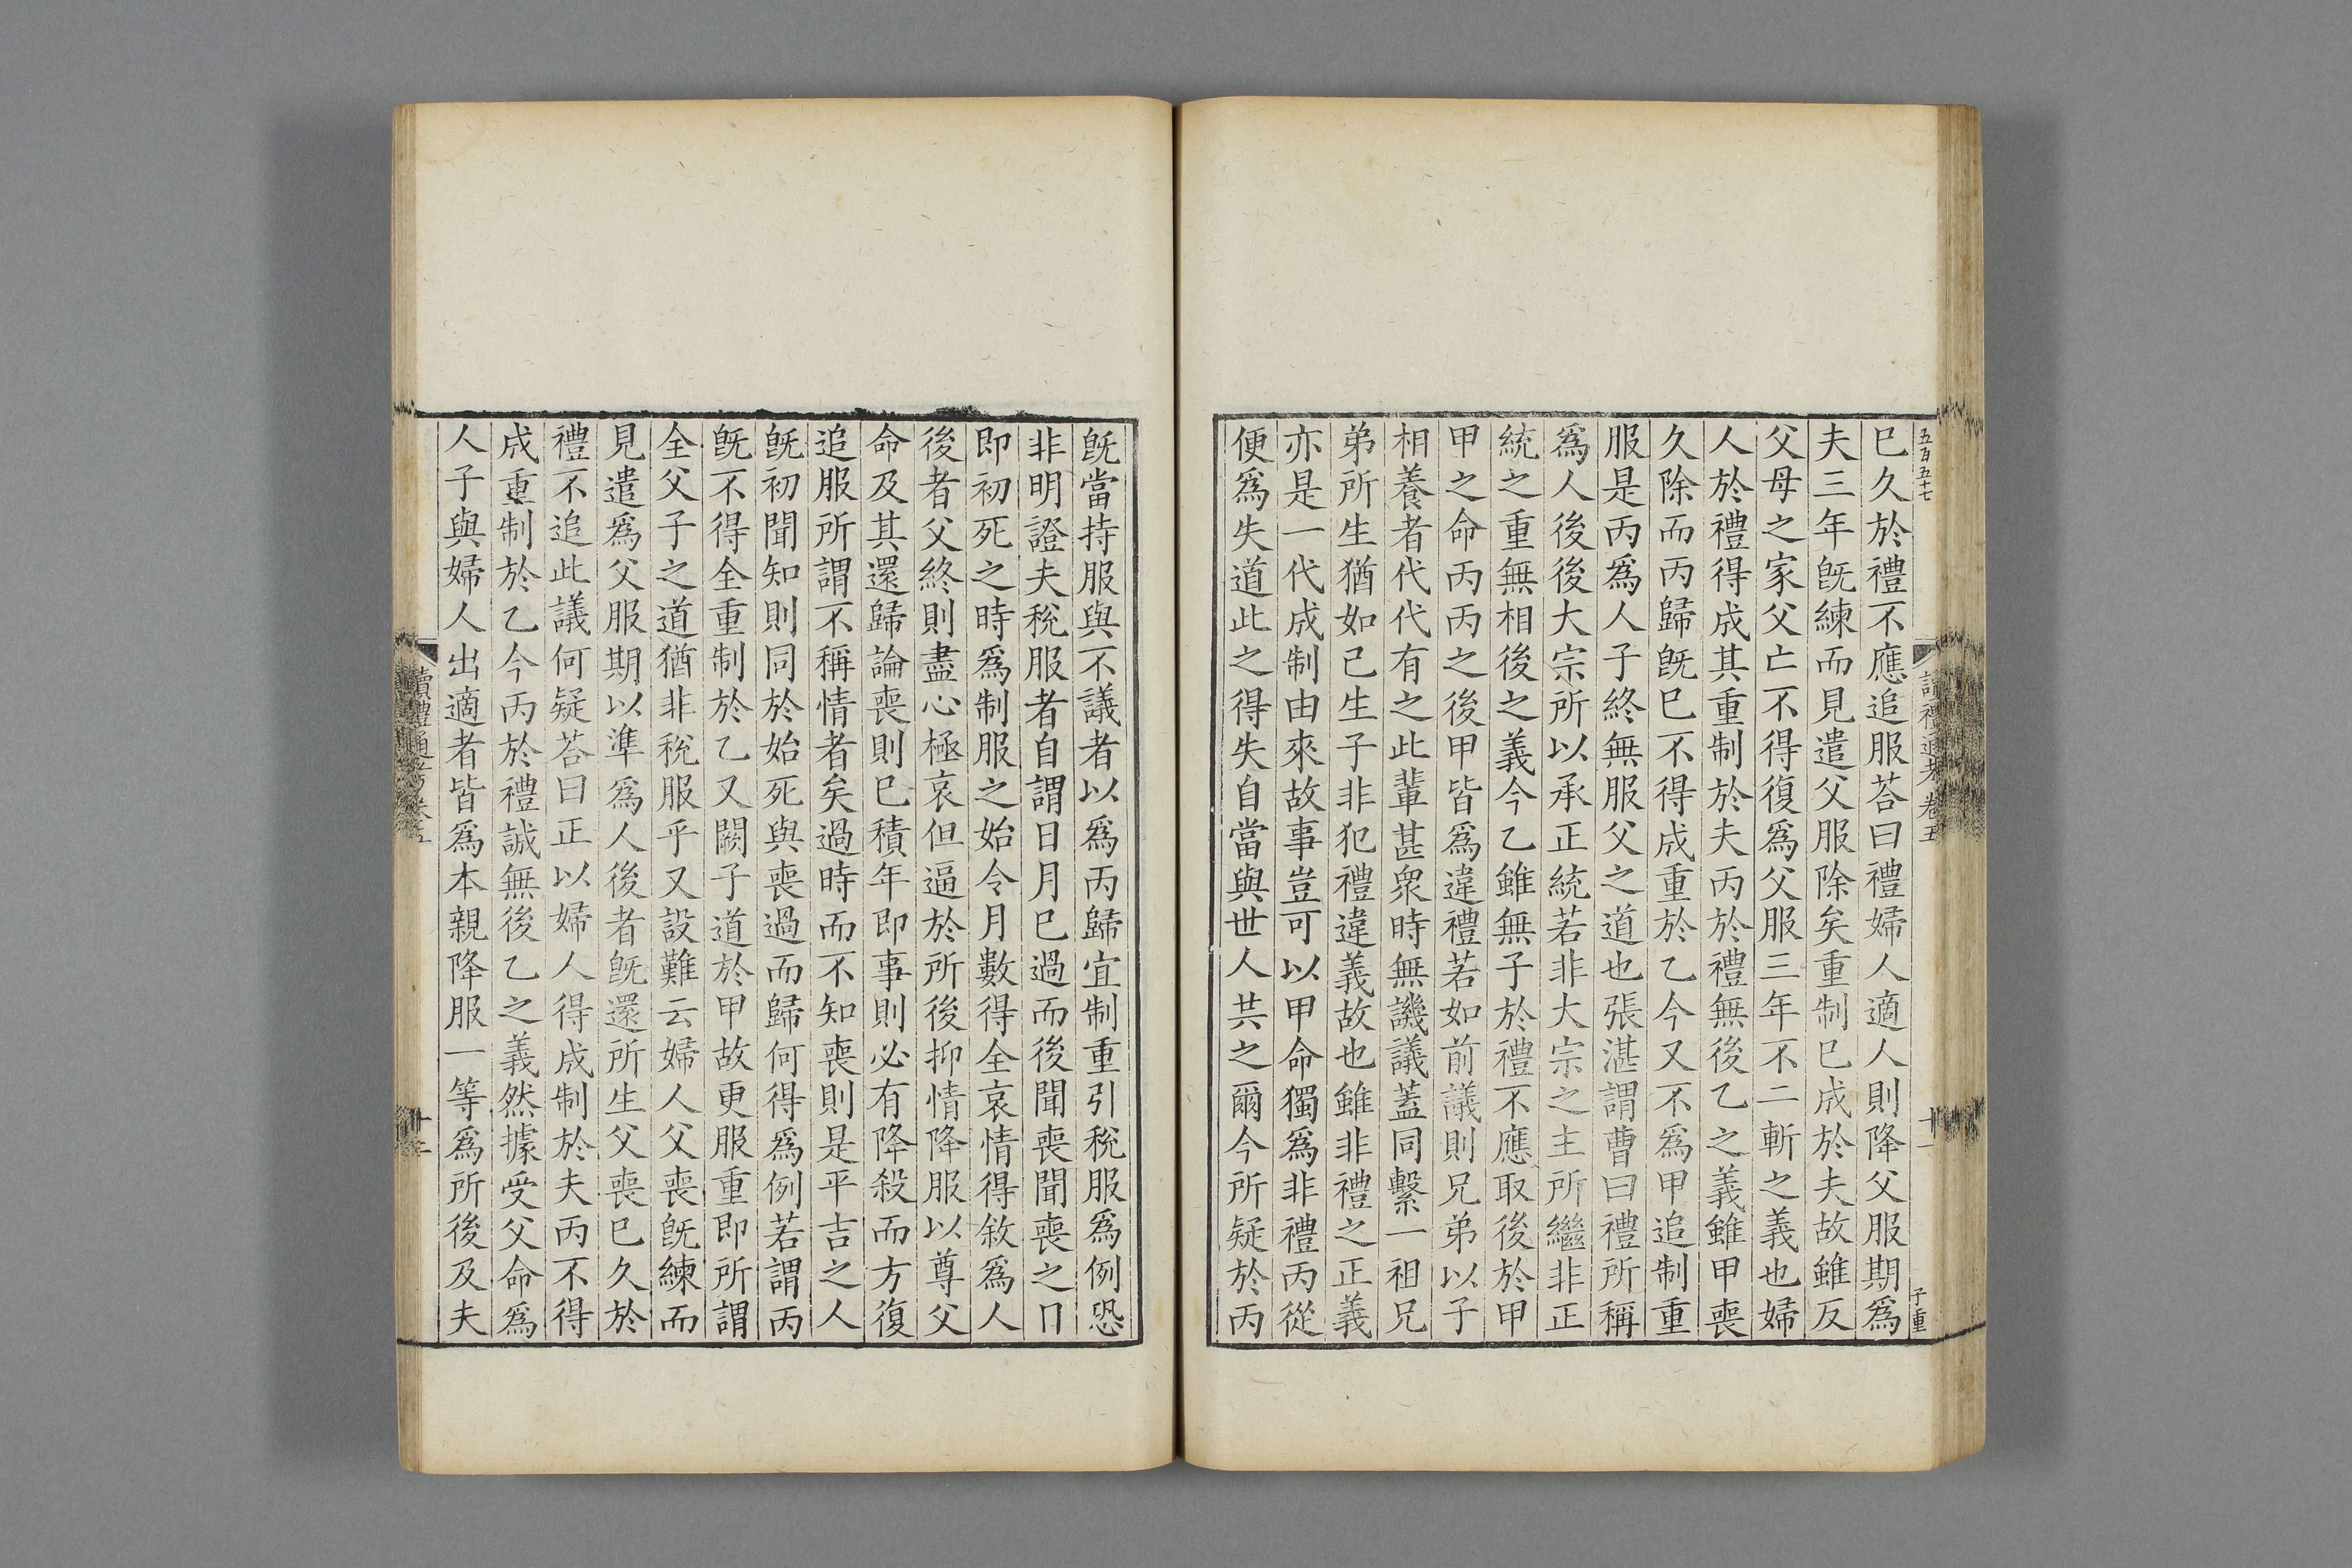 五百五十七
讀禮通考卷五
十一
子重
已久於禮不應追服荅曰禮婦人適人則降父服期爲
夫三年旣練而見遣父服除矣重制已成於夫故雖反
父母之家父亡不得復爲父服三年不二斬之義也婦
人於禮得成其重制於夫丙於禮無後乙之義雖甲喪
久除而丙歸旣已不得成重於乙今又不爲甲追制重
服是丙爲人子終無服父之道也張湛謂曹曰禮所稱
爲人後後大宗所以承正統若非大宗之主所繼非正
統之重無相後之義今乙雖無子於禮不應取後於甲
甲之命丙丙之後甲皆爲違禮若如前議則兄弟以子
相養者代代有之此輩甚衆時無譏議蓋同繫一祖兄
弟所生猶如己生子非犯禮違義故也雖非禮之正義
亦是一代成制由來故事豈可以甲命獨爲非禮丙從
便爲失道此之得失自當與世人共之爾今所疑於丙
旣當持服與不議者以爲丙歸宜制重引稅服爲例恐
非明證夫稅服者自謂日月已過而後聞喪聞喪之
即初死之時爲制服之始令月數得全哀情得敘爲人
後者父終則盡心極哀但逼於所後抑情降服以尊父
命及其還歸論喪則已積年即事則必有降殺而方復
追服所謂不稱情者矣過時而不知喪則是平吉之人
旣初聞知則同於始死與喪過而歸何得爲例若謂丙
旣不得全重制於乙又闕子道於甲故更服重即所謂
全父子之道猶非稅服乎又設難云婦人父喪旣練而
見遣爲父服期以準爲人後者旣還所生父喪已久於
禮不追此議何疑荅曰正以婦人得成制於夫丙不得
成重制於乙今丙於禮誠無後乙之義然據受父命爲
人子與婦人出適者皆爲本親降服一等爲所後及夫
讀禮通考卷五
十二